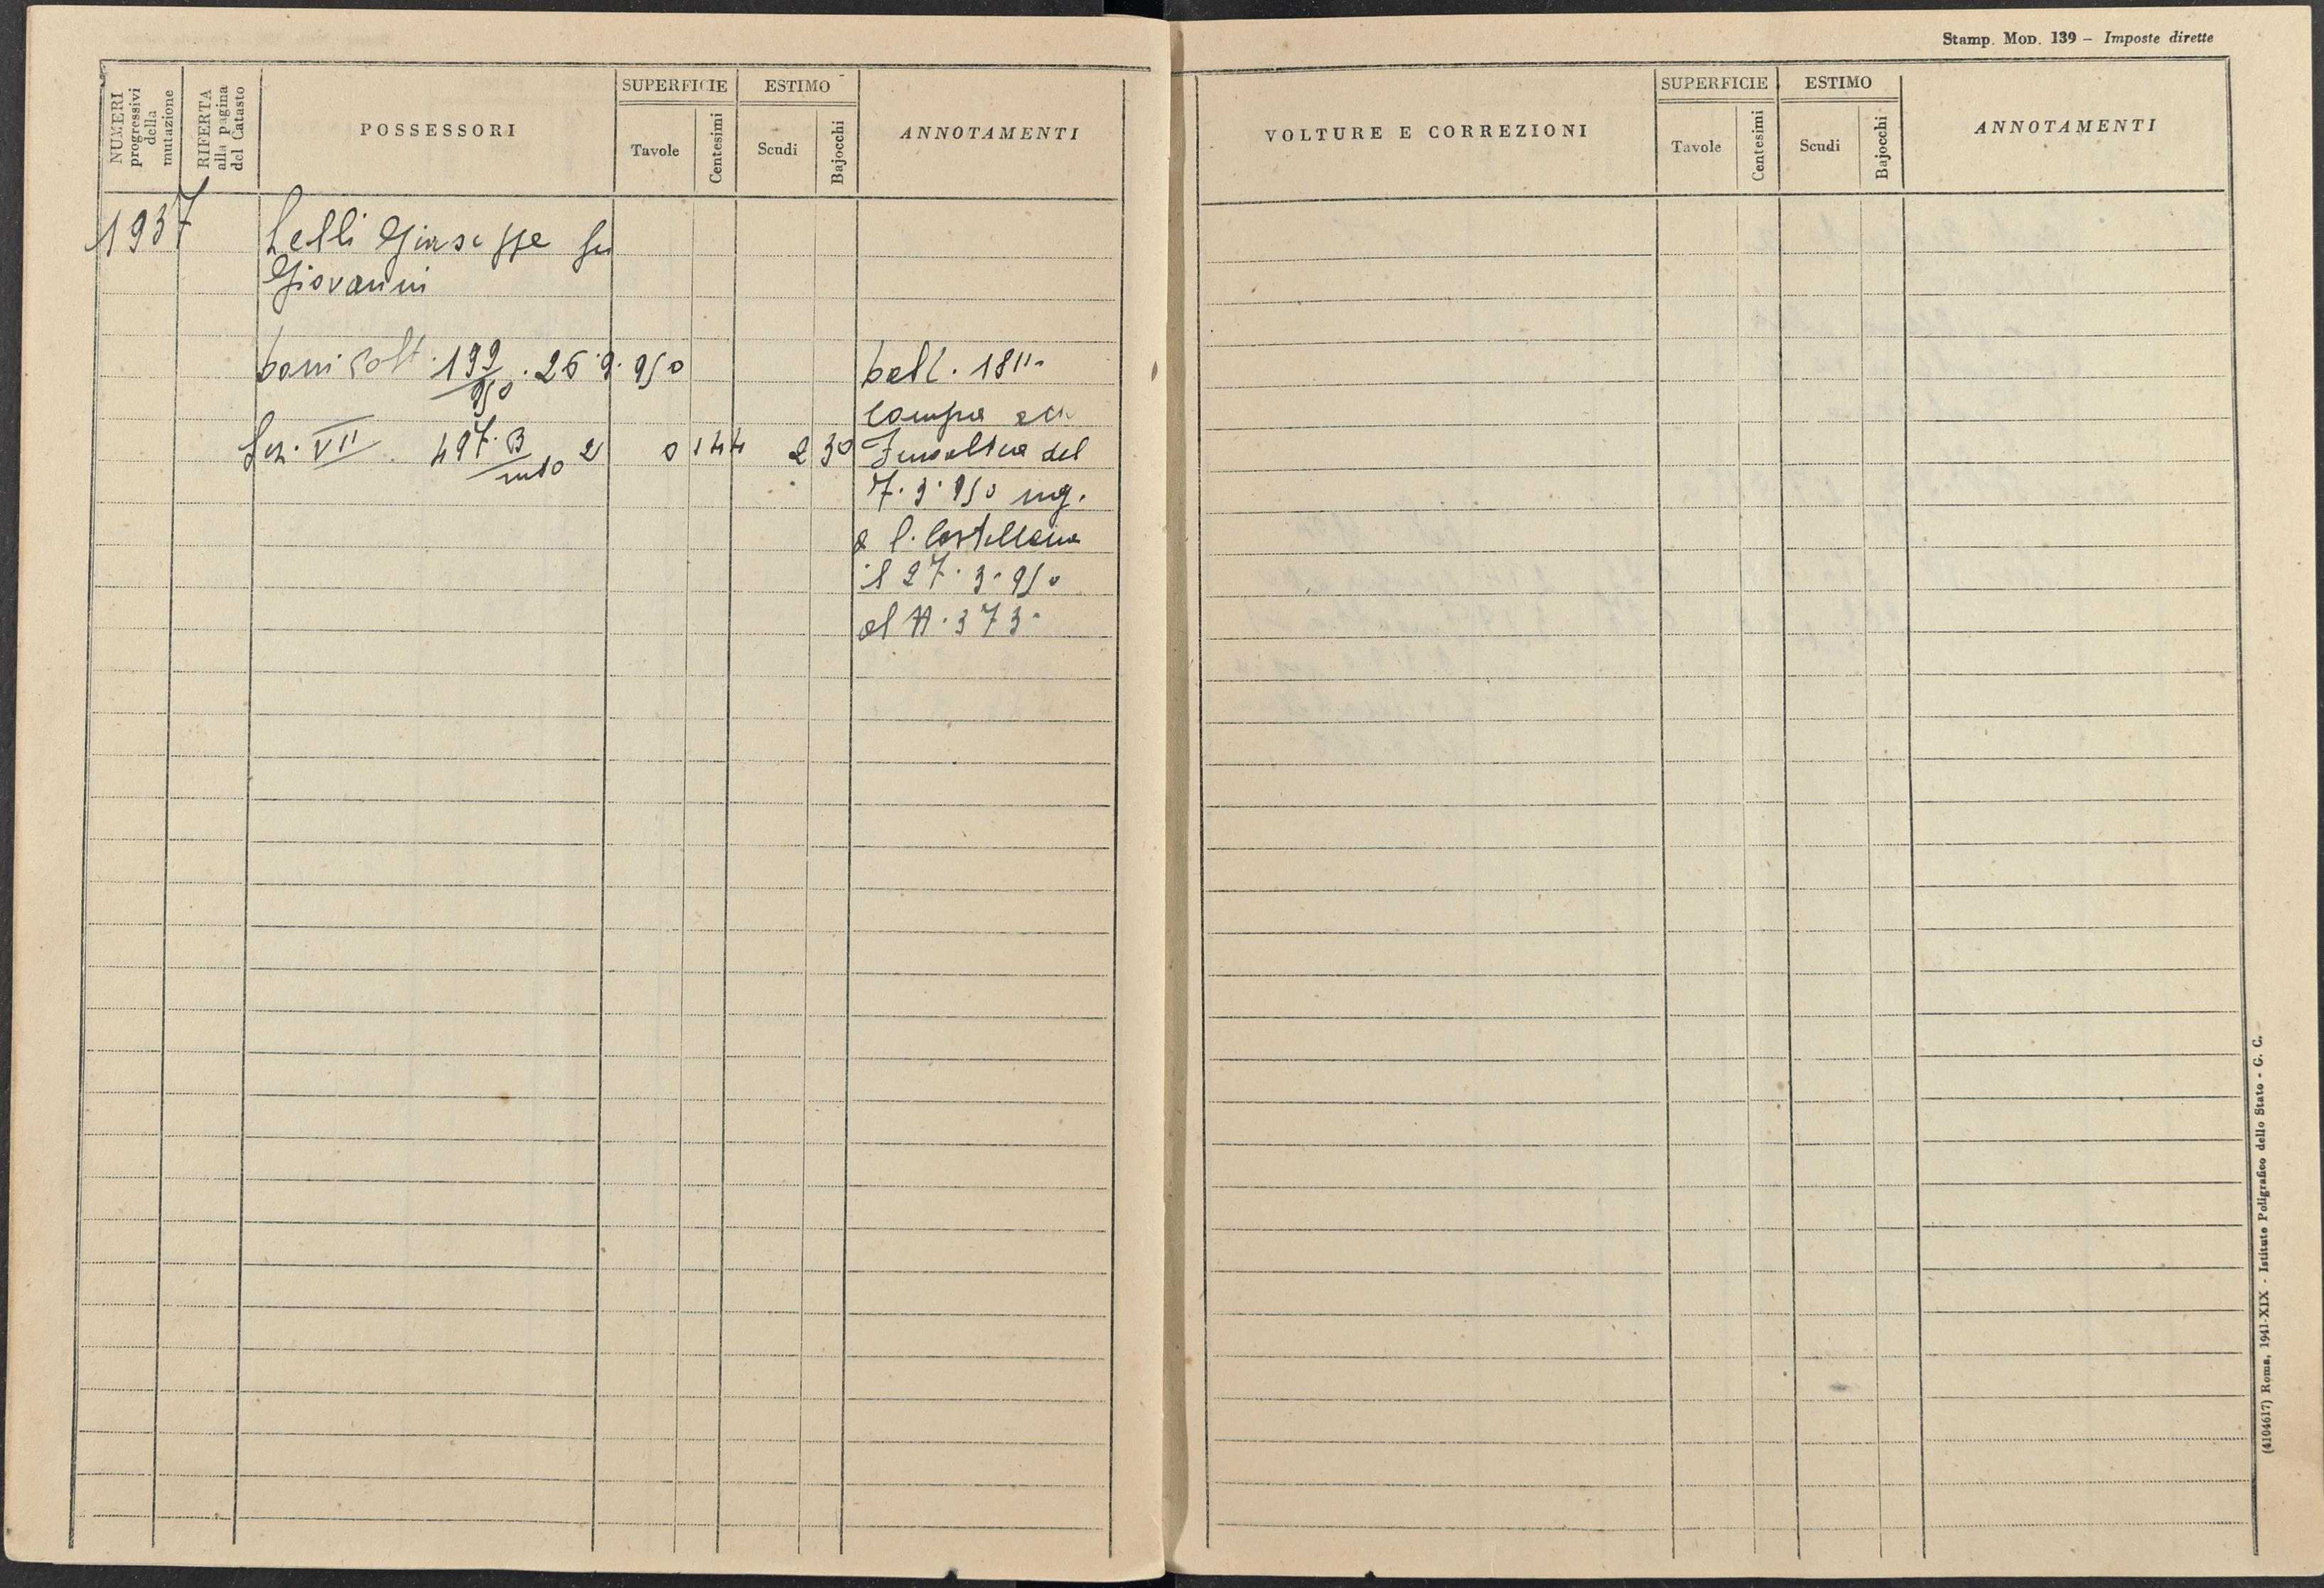 NUMERI progressivi della mutazione
RIFERTA alla pagina del Catasto
POSSESSORI
SUPERFICIE
Tavole
Centesimi
ESTIMO
Scudi
Bajocchi
ANNOTAMENTI
1937
Lelli Giuseppe fu
Giovanni
199/950 . 26.9.950
bell. 1811
Compra
Sez. VII 497.B/ 2 0 144 2 30
del
7.3.950 reg.
a C. Castellana
il 27.3.950
al N. 373
Stamp. Mod. 139 – Imposte dirette
VOLTURE E CORREZIONI
SUPERFICIE
Tavole
Centesimi
ESTIMO
Scudi
Bajocchi
ANNOTAMENTI
(4104617) Roma, 1941-XIX - Istituto Poligrafico dello Stato - G. C.